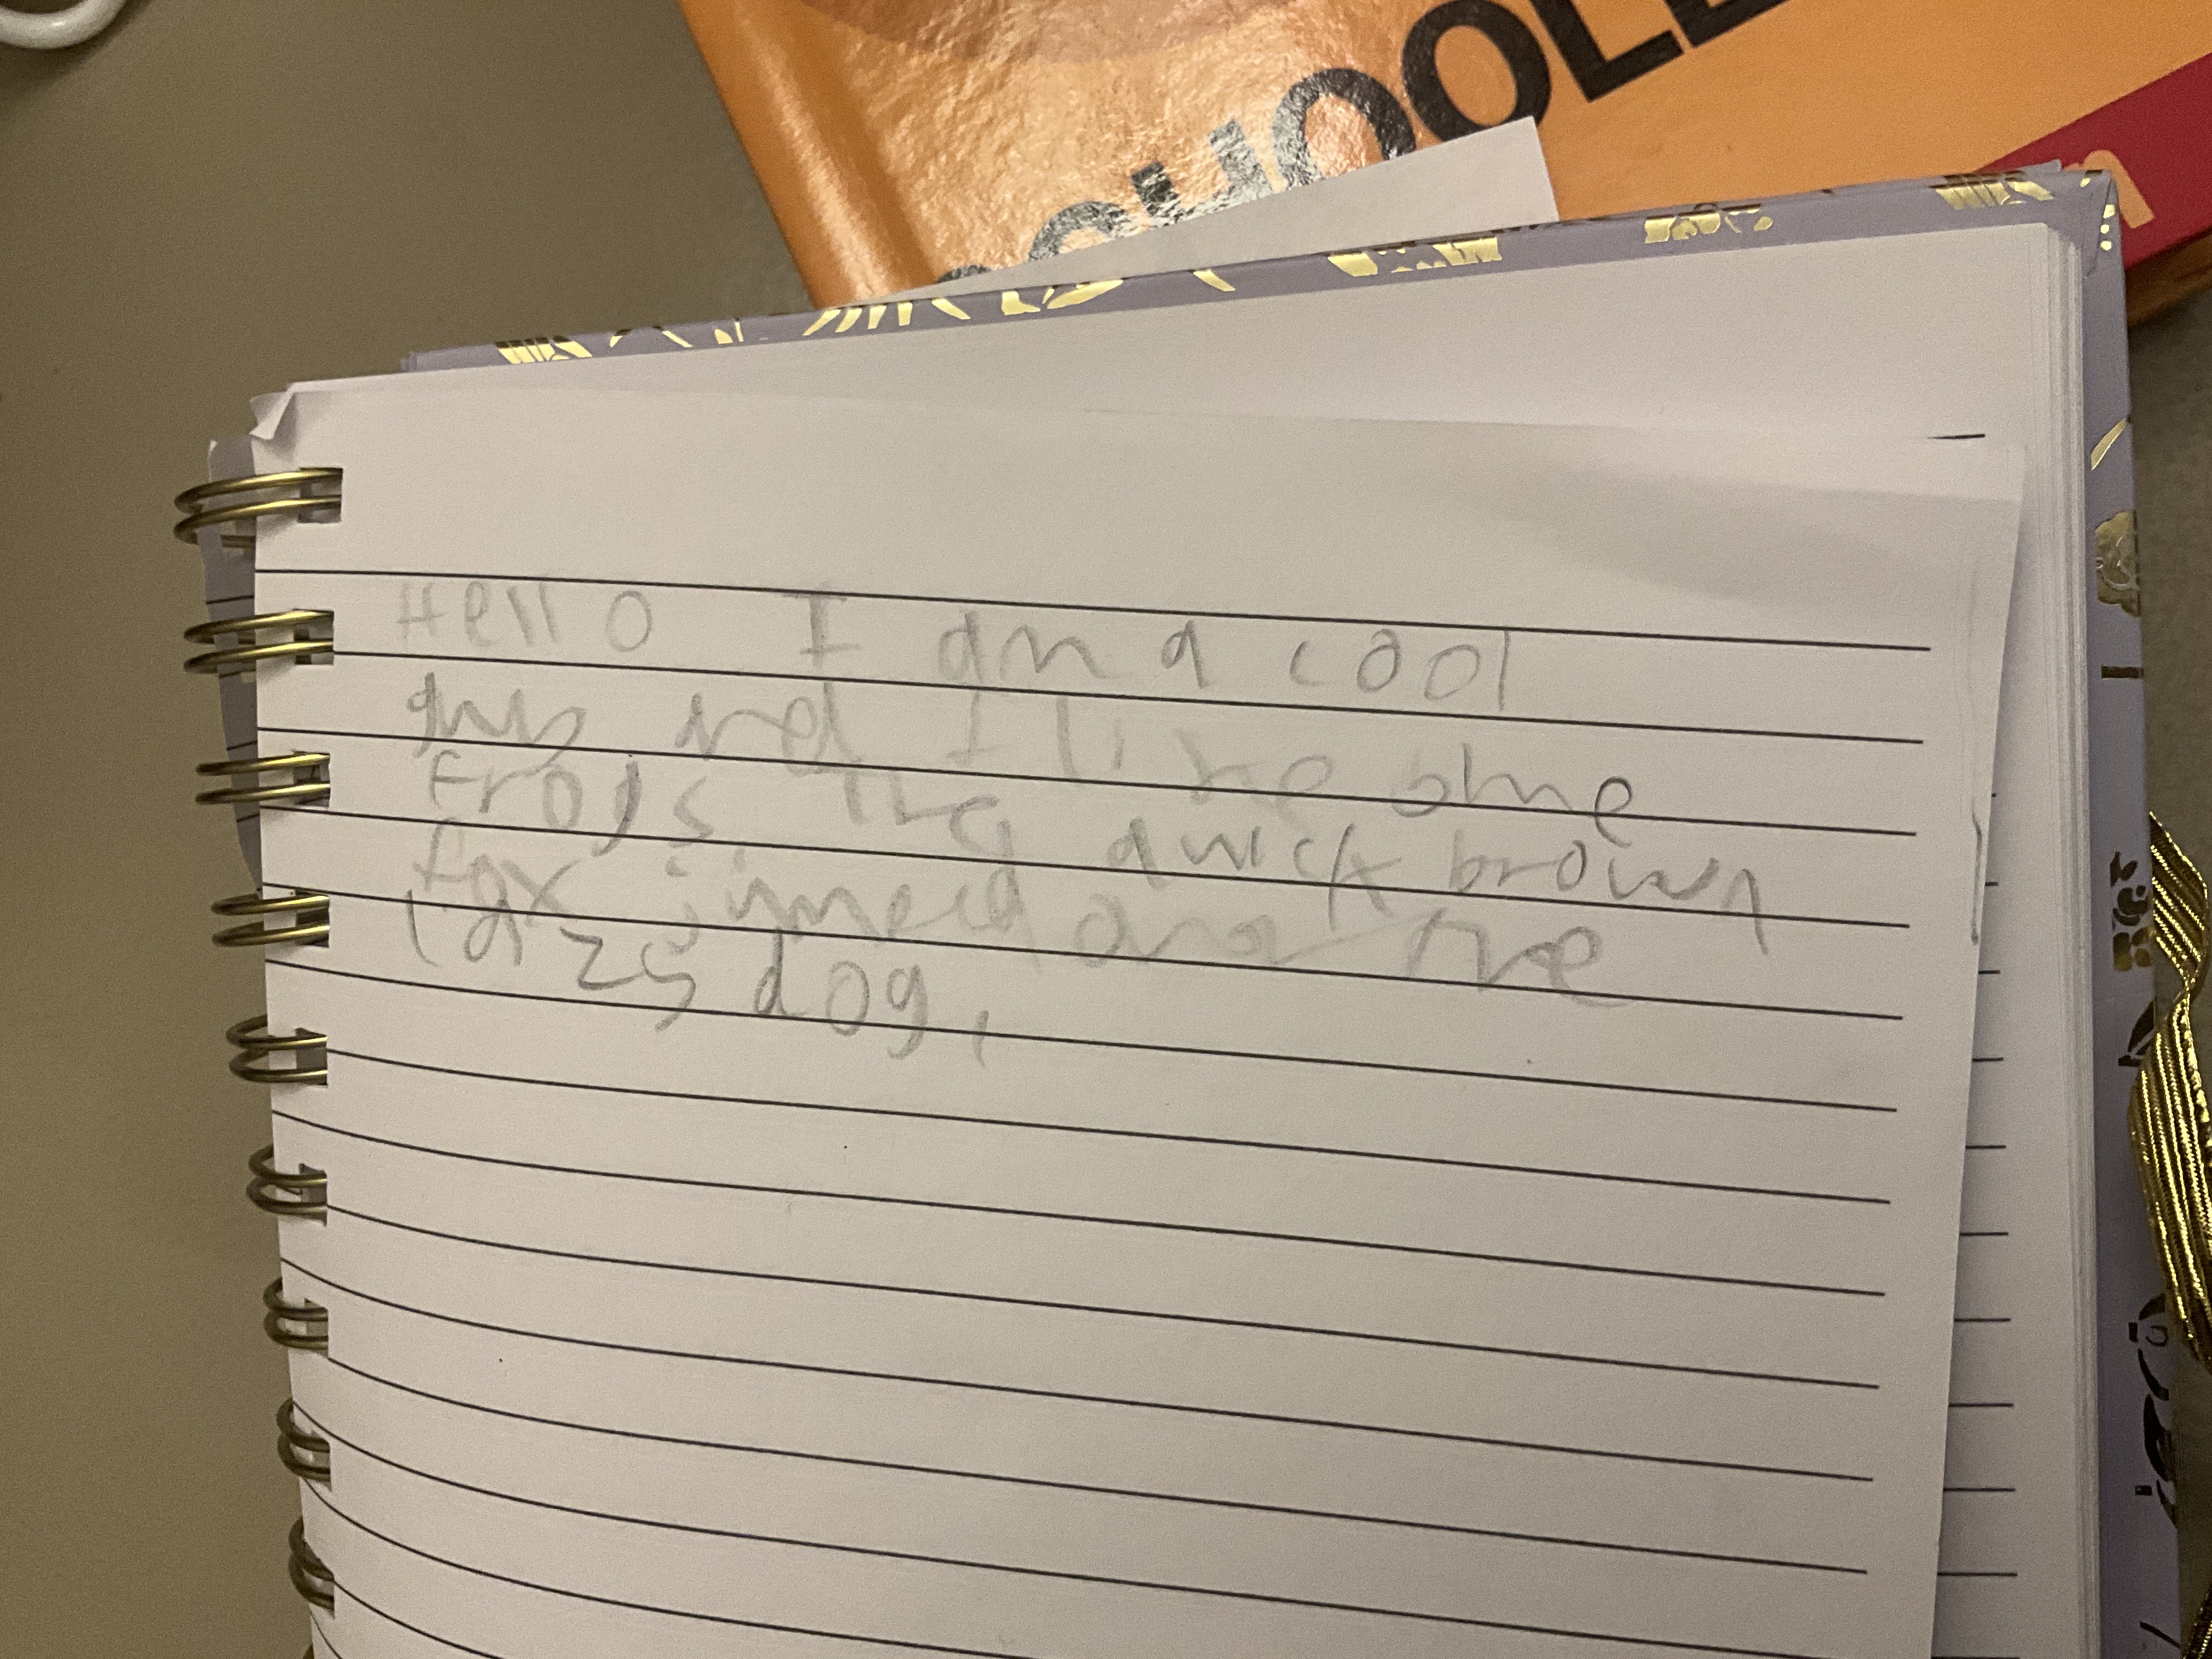 SCHOOL
Hello I am a cool
guy and I like blue
Frogs the quick brown
fox jumped over the
lazy dog,